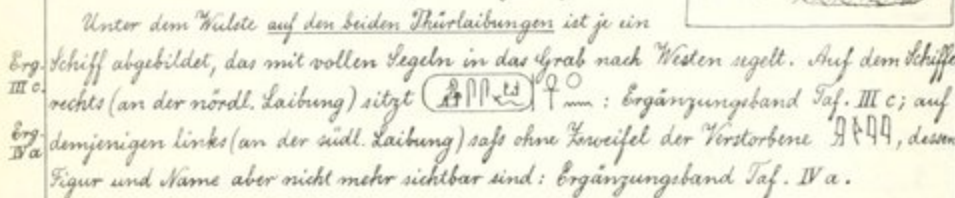 Unter dem Wulste auf den beiden Thürlaibungen ist je ein
Erg. III c. Schiff abgebildet, das mit vollen Segeln in das Grab nach Westen segelt. Auf dem Schiffe
rechts (an der nördl. Laibung) sitzt : Ergänzungsband Taf. III c; auf
Erg. IV a demjenigen links (an der südl. Laibung) saß ohne Zweifel der Verstorbene , dessen
Figur und Name aber nicht mehr sichtbar sind: Ergänzungsband Taf. IV a.